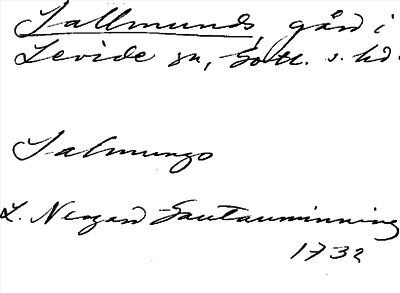 Sallmunds, gård i
Levide sn, Gotl. s. hd.
Salmungo
L. Neogard Gautauminning
1732